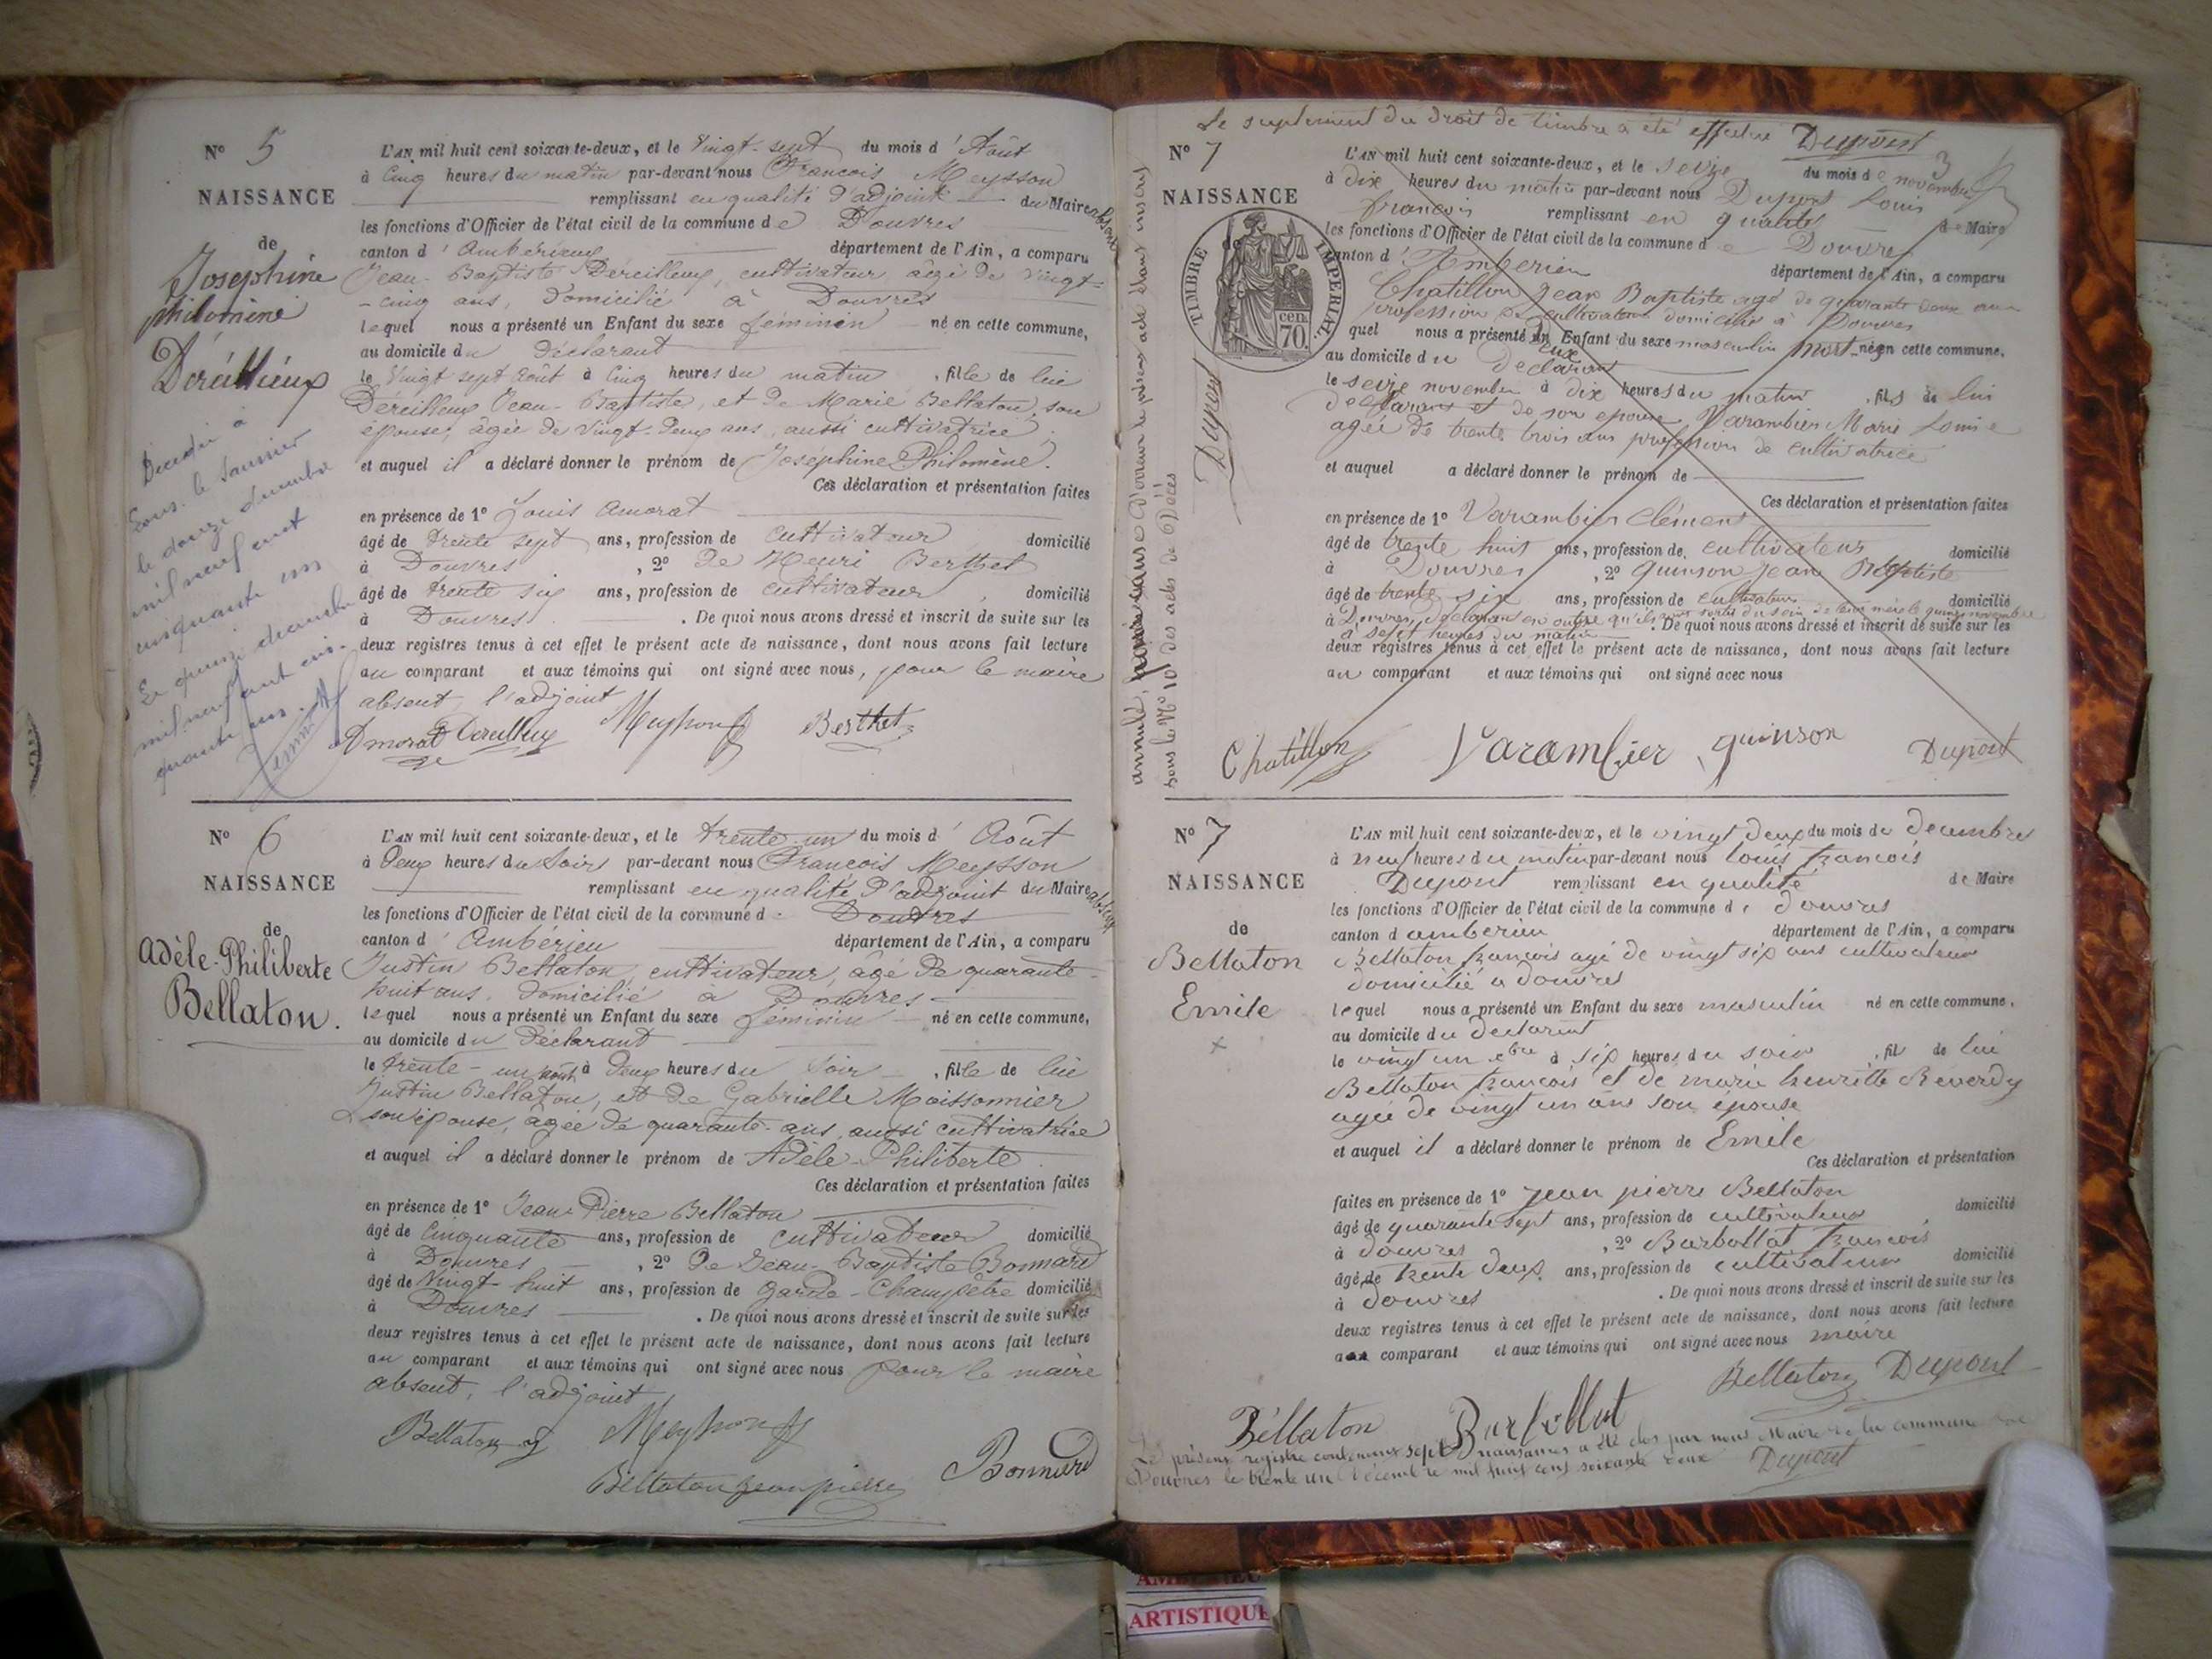 N° 5
NAISSANCE
de
Joséphine
Philomène
Déreillieux
Décédée à
Lons-le-Saunier
le douze décembre
mil neuf cent
cinquante un
Le quinze décembre
mil neuf cent cin-
quante un.
L'AN mil huit cent soixante-deux, et le Vingt-sept du mois d'Août
à Cinq heures du matin par-devant nous François Meysson
remplissant en qualité d'adjoint du Maire absent
les fonctions d'Officier de l'état civil de la commune de Douvres
canton d'Ambérieux département de l'Ain, a comparu
Jean-Baptiste Déreilleux, cultivateur âgé de vingt-
-cinq ans, domicilié à Douvres
lequel nous a présenté un Enfant du sexe féminin né en cette commune,
au domicile du déclarant
le Vingt sept Août à Cinq heures du matin, fille de lui
Déreilleux Jean-Baptiste, et de Marie Bellaton, son
épouse, âgée de Vingt-deux ans, aussi cultivatrice,
et auquel il a déclaré donner le prénom de Joséphine Philomène.
Ces déclaration et présentation faites
en présence de 1° Louis Amorat
âgé de trente sept ans, profession de cultivateur domicilié
à Douvres, 2° de Henri Berthet
âgé de trente six ans, profession de cultivateur, domicilié
à Douvres. De quoi nous avons dressé et inscrit de suite sur les
deux registres tenus à cet effet le présent acte de naissance, dont nous avons fait lecture
au comparant et aux témoins qui ont signé avec nous, pour le maire
absent, l'adjoint
Amorat Dereilleux Meysson Berthet
N° 6
NAISSANCE
de
Adèle-Philiberte
Bellaton.
L'AN mil huit cent soixante-deux, et le trente un du mois d'Août
à Deux heures du Soir par-devant nous François Meysson
remplissant en qualité d'adjoint du Maire absent
les fonctions d'Officier de l'état civil de la commune d. Douvres
canton d'Ambérieu département de l'Ain, a comparu
Justin Bellaton, cultivateur, âgé de quarante-
huit ans, domicilié à Douvres
lequel nous a présenté un Enfant du sexe féminin né en cette commune,
au domicile du Déclarant
le trente-un août à Deux heures du Soir, fille de lui
Justin Bellaton, et de Gabrielle Moissonnier
son épouse, âgée de quarante-ans, aussi cultivatrice
et auquel il a déclaré donner le prénom de Adèle-Philiberte
Ces déclaration et présentation faites
en présence de 1° Jean-Pierre Bellaton
âgé de Cinquante ans, profession de cultivateur domicilié
à Douvres, 2° De Jean-Baptiste Bonnard
âgé de Vingt-huit ans, profession de Garde-Champêtre domicilié
à Douvres. De quoi nous avons dressé et inscrit de suite sur les
deux registres tenus à cet effet le présent acte de naissance, dont nous avons fait lecture
au comparant et aux témoins qui ont signé avec nous pour le maire
absent, l'adjoint
Bellaton Meysson
Bellaton jean pierre Bonnard
Le suplement du droit de timbre a été effectué Dupont
3
N° 7
NAISSANCE
TIMBRE IMPERIAL.
70 cen.
Dupont
annulé, pour cause d'erreur le présent acte étant inscrit
sous le N° 10 des actes de Décès
L'AN mil huit cent soixante-deux, et le seize du mois de novembre
à dix heures du matin par-devant nous Dupont Louis
françois remplissant en qualité de Maire
les fonctions d'Officier de l'état civil de la commune de Douvres
canton d'Amberieu département de l'Ain, a comparu
Chatillon Jean Baptiste agé de quarante deux ans
profession de cultivateur domicilié à Douvres
quel nous a présenté un Enfant du sexe masculin mort-né en cette commune,
au domicile du Déclarant
le seize novembre à dix heures du matin, fils de lui
declarant et de son epouse Varambier Marie Louise
agée de trente trois ans profession de cultivatrice
et auquel a déclaré donner le prénom de
Ces déclaration et présentation faites
en présence de 1° Varambier Clément
âgé de trente huit ans, profession de cultivateur domicilié
à Douvres, 2° quinson jean Baptiste
âgé de trente six ans, profession de cultivateur domicilié
à Douvres, déclarant en outre qu'ils sont sortis du sein de leur mère le quinze novembre
à sept heures du matin. De quoi nous avons dressé et inscrit de suite sur les
deux registres tenus à cet effet le présent acte de naissance, dont nous avons fait lecture
au comparant et aux témoins qui ont signé avec nous
Chatillon Varambier quinson Dupont
N° 7
NAISSANCE
de
Bellaton
Emile
L'AN mil huit cent soixante-deux, et le vingt deux du mois de decembre
à neuf heures du matin par-devant nous louis francois
Dupont remplissant en qualité de Maire
les fonctions d'Officier de l'état civil de la commune de douvres
canton d amberieu département de l'Ain, a comparu
Bellaton francois agé de vingt six ans cultivateur
domicilié a douvres
lequel nous a présenté un Enfant du sexe masculin né en cette commune,
au domicile du declarant
le vingt un xbre à six heures du soir, fil de lui
Bellaton francois et de marie henriette Reverdy
agée de vingt un ans son épouse
et auquel il a déclaré donner le prénom de Emile
Ces déclaration et présentation
faites en présence de 1° jean pierre Bellaton
âgé de quarante sept ans, profession de cultivateur domicilié
à douvres, 2° Barbollat francois
âgé de trente deux ans, profession de cultivateur domicilié
à douvres. De quoi nous avons dressé et inscrit de suite sur les
deux registres tenus à cet effet le présent acte de naissance, dont nous avons fait lecture
au comparant et aux témoins qui ont signé avec nous maire
Bellaton Dupont
Béllaton Barbollat
Le présent registre contenant sept naissances a été clos par nous Maire de la commune de
Douvres le trente un décembre mil huit cent soixante deux Dupont
ARTISTIQUE